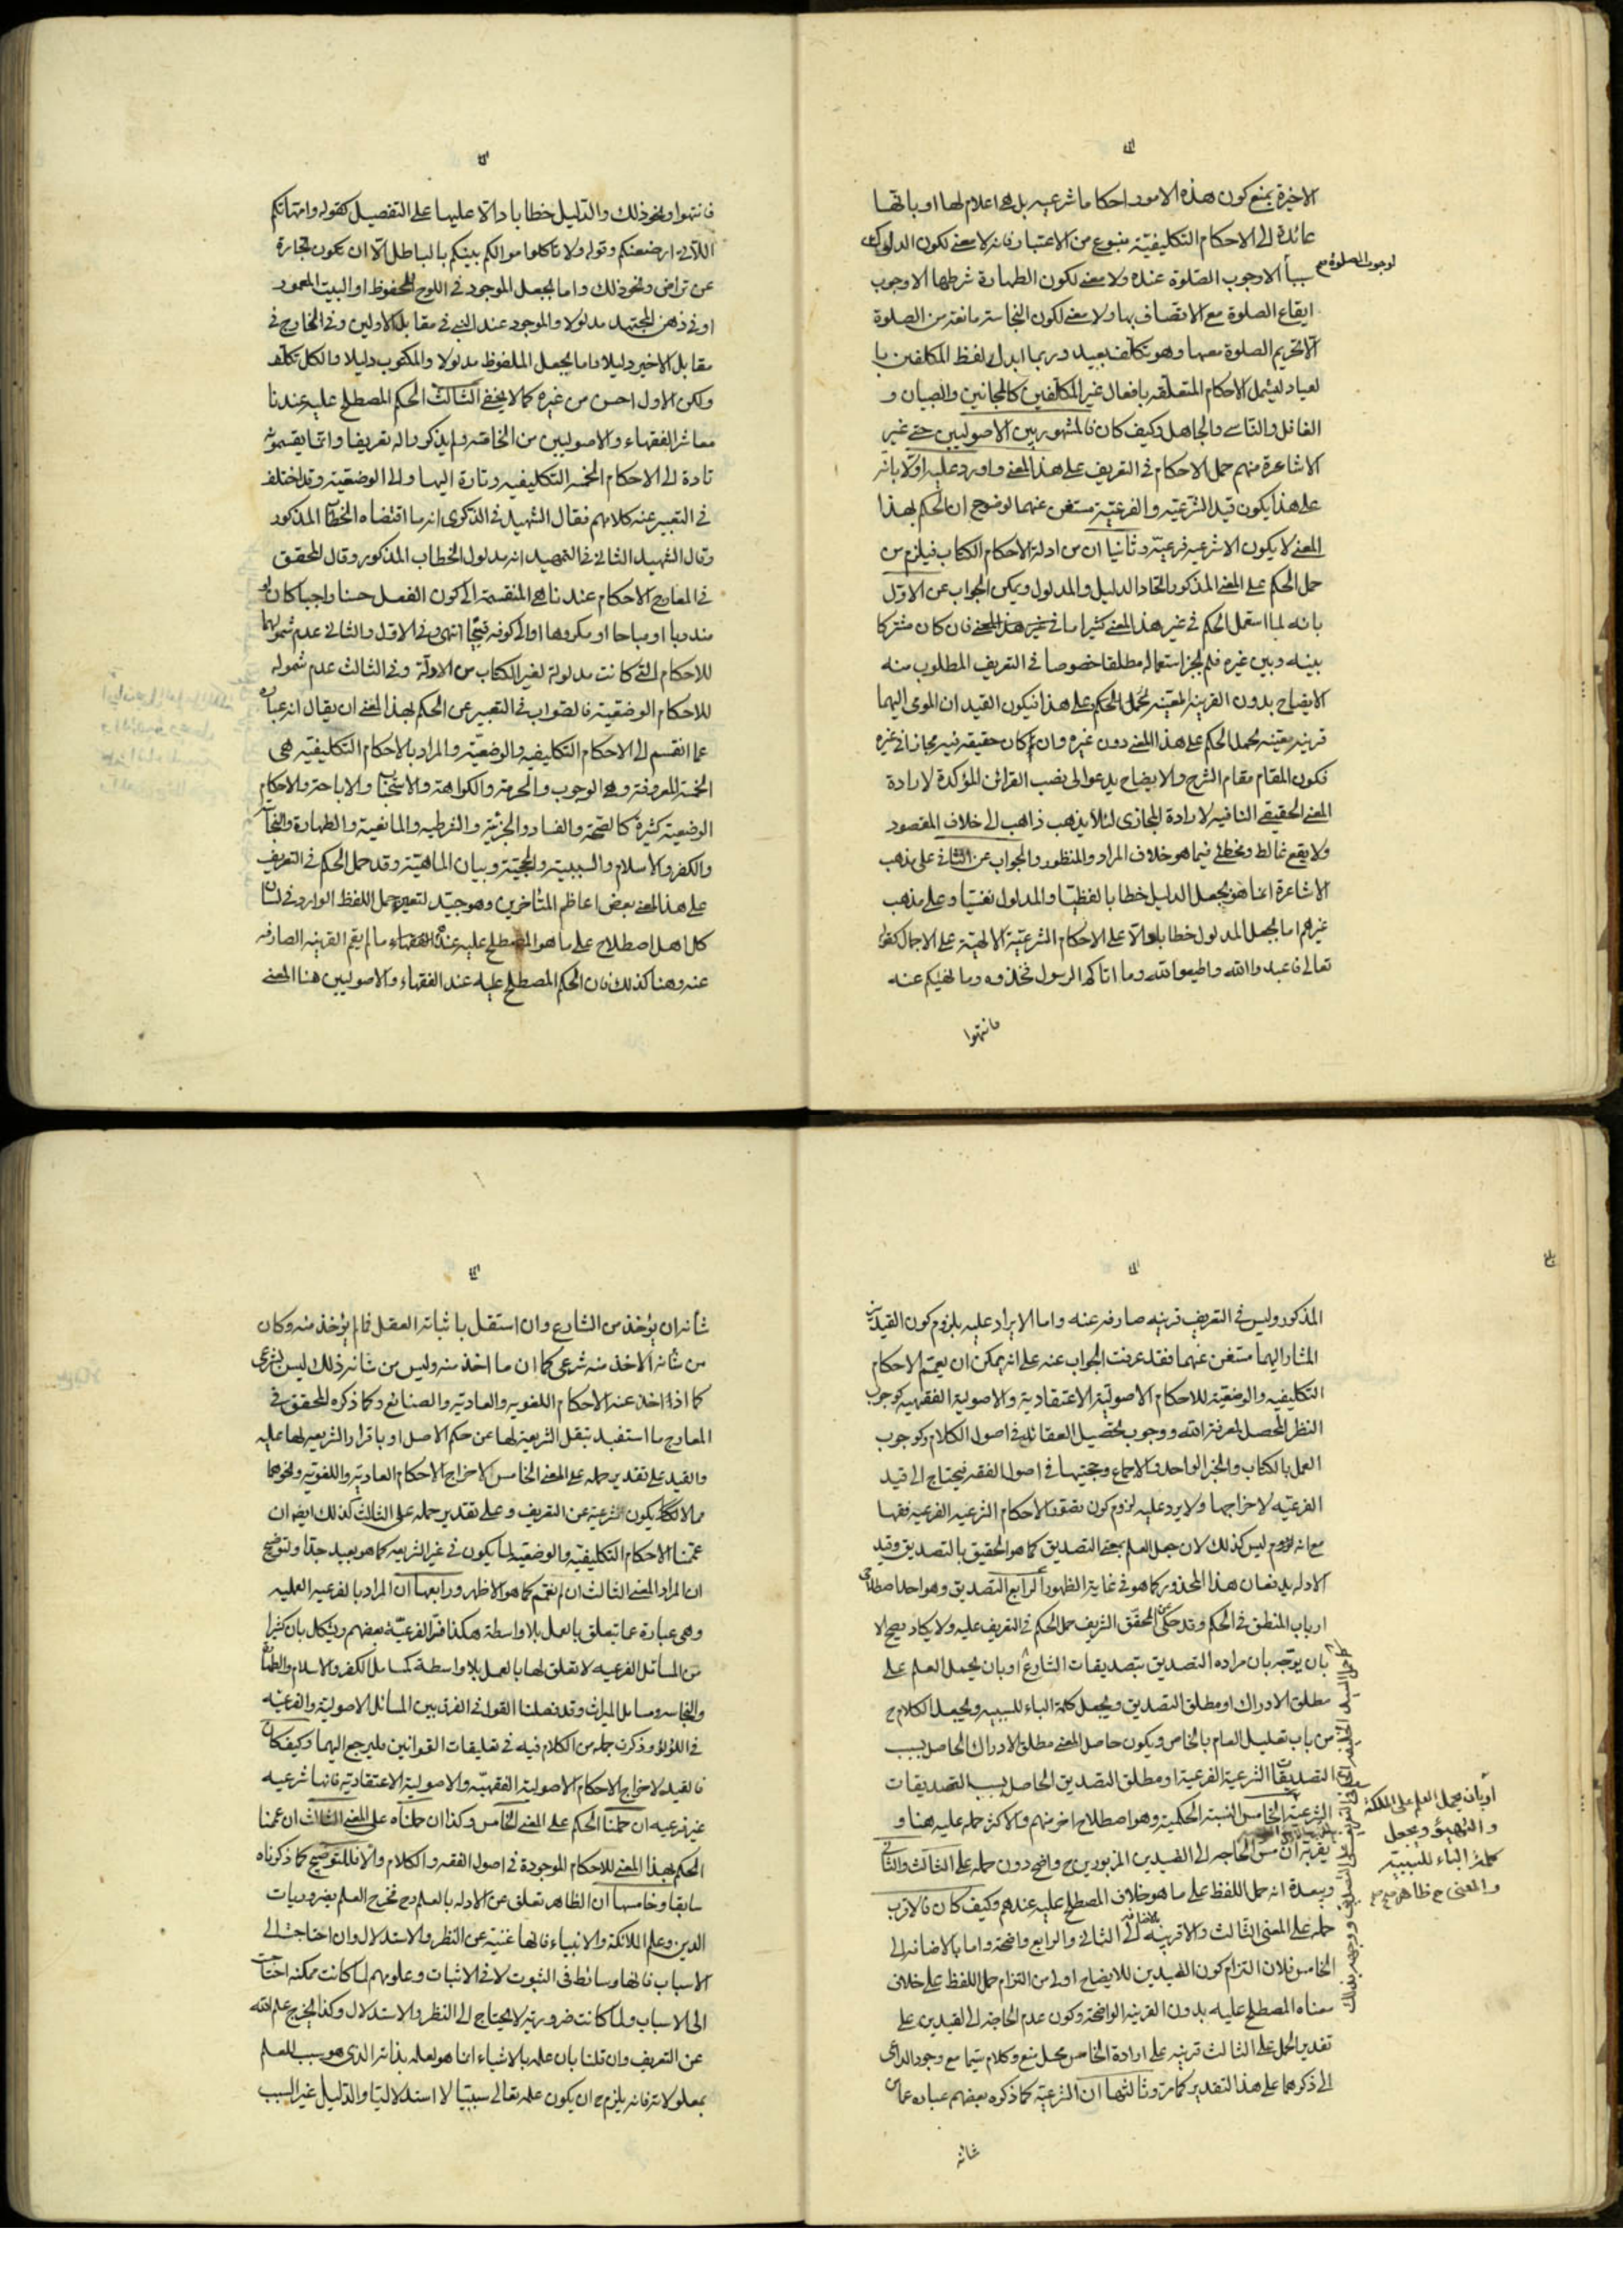 الاخيرة بمنع كون هذه الامور احكاما شرعيه بل هى اعلام لها او بانها
عائدة الى الاحكام التكليفية بنوع من الاعتبار فانه لا معنى لكون الدلوك
لوجوب الصلوة صح
سببا الا وجوب الصلوة عنده ولا معنى لكون الطهارة شرطها الا وجوب
ايقاع الصلوة مع الاتصاف بها ولا معنى لكون النجاسة مانعة من الصلوة
الا تحريم الصلوة معها وهو تكلف بعيد وربما ابدل لفظ المكلفين با
لعباد ليشمل الاحكام المتعلقه بافعال غير المكلفين كالمجانين والصبيان و
الغافل والناسى والجاهل وكيف كان فالمشهور بين الاصوليين حتى غير
الاشاعرة منهم حمل الاحكام فى التعريف على هذا المعنى واورد عليه اولا بانه
على هذا يكون قيد الشرعية والفرعية مستغن عنهما لوضوح ان الحكم بهذا
المعنى لا يكون الا شرعيه فرعية وثانيا ان من ادلة الاحكام الكتاب فيلزم من
حمل الحكم على المعنى المذكور اتحاد الدليل والمدلول ويمكن الجواب عن الاول
بانه لما استعمل الحكم فى غير هذا المعنى كثيرا فان كان مشتركا
بينه وبين غيره فلم يجز استعماله مطلقا خصوصا فى التعريف المطلوب منه
الايضاح بدون القرينة المعينه لحمل الحكم على هذا فيكون القيد ان المومى اليهما
قرينه معينه لحمل الحكم على هذا المعنى دون غيره وان كان حقيقه فيه مجازا فى غيره
فكون المقام مقام الشرح والايضاح يدعوا الى نصب القرائن المؤكدة لارادة
المعنى الحقيقى النافيه لارادة المجازى لئلا يذهب ذاهب الى خلاف المقصود
ولا يقع غالط ومخطئ فيما هو خلاف المراد والمنظور والجواب عن الثانى على مذهب
الاشاعرة انما هو بجعل الدليل خطابا لفظيا والمدلول نفسيا وعلى مذهب
غيرهم اما بجعل المدلول خطابا دالا على الاحكام الشرعية الالهية على الاجمال كقوله
تعالى فاعبدوا الله واطيعوا الله وما اتاكم الرسول فخذوه وما نهيكم عنه
فانتهوا
فانتهوا ونحو ذلك والدليل خطابا دالا عليها على التفصيل كقوله وامهاتكم
اللاتى ارضعنكم وقوله ولا تاكلوا اموالكم بينكم بالباطل الا ان تكون تجارة
عن تراض ونحو ذلك واما بجعل الموجود فى اللوح المحفوظ او البيت المعمور
او فى ذهن المجتهد مدلولا والموجود عند النبى فى مقابل الاولين وفى الخارج فى
مقابل الاخير دليلا واما بجعل الملفوظ مدلولا والمكتوب دليلا والكل تكلف
ولكن الاول احسن من غيره كما لا يخفى الثالث الحكم المصطلح عليه عندنا
معاشر الفقهاء والاصوليين من الخاصه ولم يذكروا له تعريفا وانما يقسموه
تارة الى الاحكام الخمسه التكليفيه وتارة اليها والى الوضعية وقد اختلف
فى التعبير عنه كلامهم فقال الشهيد فى الذكرى انه ما اقتضاه الخطاب المذكور
وقال الشهيد الثانى فى التمهيد انه مدلول الخطاب المذكور وقال المحقق
فى المعارج الاحكام عندنا هى المنقسمة الى كون الفعل حسنا واجبا كان او
مندوبا او مباحا او مكروها او الى كونه قبيحا انتهى وفى الاول والثانى عدم شمولهما
للاحكام التى كانت مدلولة لغير الكتاب من الادلة وفى الثالث عدم شموله
للاحكام الوضعية فالصواب فى التعبير عن الحكم بهذا المعنى ان يقال انه عبارة
عما انقسم الى الاحكام التكليفيه والوضعية والمراد بالاحكام التكليفية هى
الخمسة المعروفة وهى الوجوب والحرمة والكراهة والاستحباب والاباحة والاحكام
الوضعية كثيرة كالصحة والفساد والجزئية والشرطيه والمانعية والطهارة والنجاسة
والكفر والاسلام والسببية والحجية وبيان الماهية وقد حمل الحكم فى التعريف
على هذا المعنى بعض اعاظم المتاخرين وهو جيد لتعين حمل اللفظ الوارد فى لسان
كل اهل اصطلاح على ما هو المصطلح عليه عندهم ما لم يقم القرينه الصارفه
عنه وهنا كذلك فان الحكم المصطلح عليه عند الفقهاء والاصوليين هذا المعنى
المذكور وليس فى التعريف قرينه صارفه عنه واما الايراد عليه بلزوم كون القيدين
المشار اليهما مستغن عنهما فقد عرفت الجواب عنه على انه يمكن ان يعمم الاحكام
التكليفيه والوضعية للاحكام الاصولية الاعتقادية والاصولية الفقهيه كوجوب
النظر المحصل لمعرفة الله ووجوب تحصيل العقائد فى اصول الكلام وكوجوب
العمل بالكتاب والخبر الواحد والاجماع وحجيتها فى اصول الفقه فيحتاج الى قيد
الفرعيه لاخراجها ولا يرد عليه لزوم كون تصور الاحكام الشرعيه الفرعيه فقها
مع انه ليس كذلك لان جعل العلم بمعنى التصديق كما هو الحقيق بالتصديق وقيد
الادله يدفعان هذا المحذور كما هو فى غاية الظهور الرابع التصديق وهو احد اصطلاحى
ارباب المنطق فى الحكم وقد حكى عن المحقق الشريف حمل الحكم فى التعريف عليه ولا يكاد يصح الا
بان يوجه بان مراده التصديق بتصديقات الشارع او بان يحمل العلم على
مطلق الادراك او مطلق التصديق ويجعل كلمة الباء للسببيه ويجعل الكلام ح
من باب تعليل العام بالخاص ويكون حاصل المعنى مطلق الادراك الحاصل بسبب
التصديقات الشرعية الفرعية او مطلق التصديق الحاصل بسبب التصديقات
او بان يحمل العلم على الملكة
و التهيؤ ويجعل
كلمة الباء للسببية
والمعنى ح ظاهر صح
الشرعية الخامس النسبة الحكمية وهو اصطلاح اخر منهم والاكثر حمله عليه هنا و
يقربه ان مس الحاجه الى القيدين المزبورين ح واضح دون حمله على الثالث والثانى
ويبعده انه حمل اللفظ على ما هو خلاف المصطلح عليه عندهم وكيف كان فالاقرب
حمله على المعنى الثالث والاقربيه بالاضافه الى الثانى والرابع واضحة واما بالاضافه الى
الخامس فلان التزام كون القيدين للايضاح اولى من التزام حمل اللفظ على خلاف
معناه المصطلح عليه بدون القرينه الواضحة وكون عدم الحاجة الى القيدين على
تقدير الحمل على الثالث قرينه على ارادة الخامس محل منع وكلام سيما مع وجود الداعى
الى ذكرهما على هذا التقدير كما مر وثالثها ان الشرعية كما ذكره بعضهم عباره عما من
شانه
شأنه ان يؤخذ من الشارع وان استقل باثباته العقل فما لم يؤخذ منه وكان
من شأنه الاخذ منه شرعى كما ان ما اخذ منه وليس من شانه ذلك ليس بشرعى
كما اذا اخذ عنه الاحكام اللغويه والعادية والصنائع وكما ذكره المحقق فى
المعارج ما استفيد بنقل الشريعة لها عن حكم الاصل او باقرار الشريعه لها عليه
والقيد على تقدير حمله على المعنى الخامس لاخراج الاحكام العادية واللغوية ونحوهما
مما لا يكون شرعية عن التعريف وعلى تقدير حمله على الثالث كذلك ايضا ان
عممنا الاحكام التكليفية والوضعية لما يكون فى غير الشريعه كما هو بعيد جدا ولتوضيح
ان المراد المعنى الثالث ان لم نعمم كما هو الاظهر ورابعها ان المراد بالفرعيه العمليه
وهى عبارة عما يتعلق بالعمل بلا واسطة هكذا فسر الفرعية بعضهم ويشكل بان كثيرا
من المسائل الفرعيه لا تعلق لها بالعمل بلا واسطة كمسائل الكفر والاسلام والطهارة
والنجاسه ومسائل الميراث وقد فصلنا القول فى الفرق بين المسائل الاصولية والفرعيه
فى اللؤلؤ وذكرت جملة من الكلام فيه فى تعليقات القوانين فليرجع اليهما وكيف كان
فالقيد لاخراج الاحكام الاصولية الفقهية والاصولية الاعتقادية فانها شرعيه
غير فرعيه ان حملنا الحكم على المعنى الخامس وكذا ان حملناه على المعنى الثالث ان عممنا
الحكم بهذا المعنى للاحكام الموجودة فى اصول الفقه والكلام والا فللتوضيح كما ذكرناه
سابقا وخامسها ان الظاهر تعلق عن الادله بالعلم وح تخرج العلم بضروريات
الدين وعلم الملائكة والانبياء فانها غنية عن النظر والاستدلال وان احتاجت الى
الاسباب فانها وسائط فى الثبوت لا فى الاثبات وعلومهم لما كانت ممكنه احتاجت
الى الاسباب ولما كانت ضرورية لا يحتاج الى النظر والاستدلال وكذا يخرج علم الله
عن التعريف وان قلنا بان علمه بالاشياء انما هو لعلمه بذاته الذى هو سبب للعلم
بمعلولاته فانه يلزم ح ان يكون علمه تعالى سببيا لا استدلاليا والدليل غير السبب